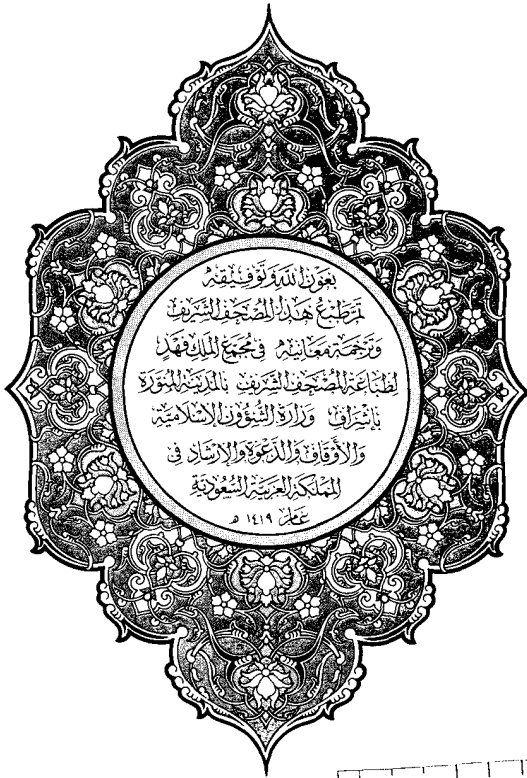 بعون الله وتوفيقه
تم طبع هذا المصحف الشريف
وترجمة معانيه في مجمع الملك فهد
لطباعة المصحف الشريف بالمدينة المنورة
بإشراف وزارة الشؤون الإسلامية
والأوقاف والدعوة والإرشاد في
المملكة العربية السعودية
عام ١٤١٩ هـ